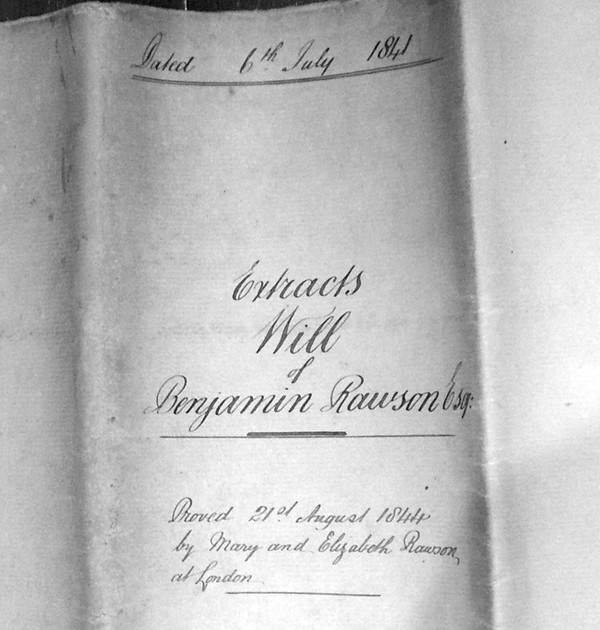 Dated 6th July 1841
Extracts
Will
of
Benjamin Rawson Esq:
Proved 21st August 1844
by Mary and Elizabeth Rawson,
at London